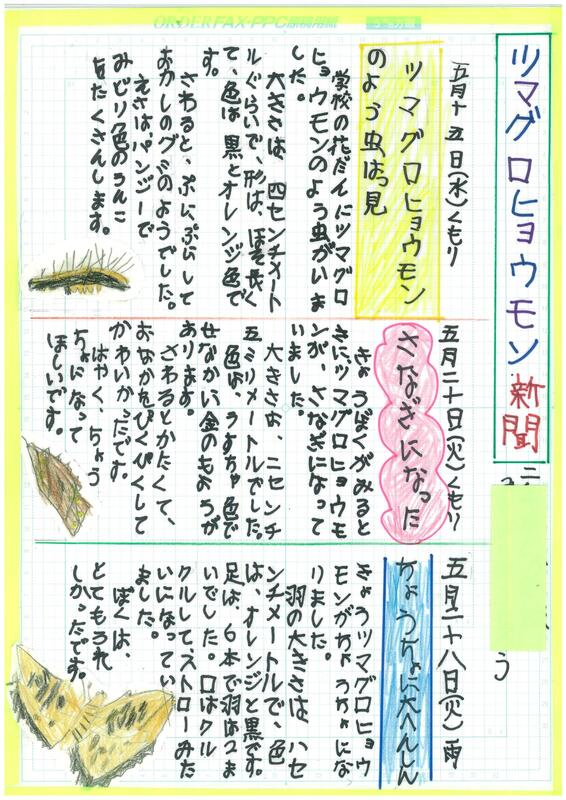 ORDER FAX・PPC原稿用紙
ツマグロヒョウモン新聞
五月十五日(水)くもり
ツマグロヒョウモン
のよう虫はっ見
学校の花だんにツマグロ
ヒョウモンのよう虫がいま
した。
大きさは、四センチメート
ルぐらいで、形は、ほそ長く
て、色は黒とオレンジ色で
す。
さわると、ぷにぷにして
おかしのグミのようでした。
えさはパンジーで
みどり色のうんこ
をたくさんします。
五月二十日(火)くもり
さなぎになった
きょうぼくがみると
きにツマグロヒョウモ
ンが、さなぎになって
いました。
大きさは、二センチ
五ミリメートルでした。
色は、うすちゃ色で
せなかに金のもようが
あります。
さわるとかたくて、
おなかをぴくぴくして
かわいかったです。
はやく、ちょう
ちょになって
ほしいです。
五月二十八日(火)雨
ちょうちょに大へんしん
きょうツマグロヒョウ
モンがちょうちょにな
りました。
羽の大きさは、ハセ
ンチメートルで、色
は、オレンジと黒です。
足は、6本で羽は2ま
いでした。口はクル
クルして、ストローみた
いになってい
ました。
ぼくは、
とてもうれ
しかったです。